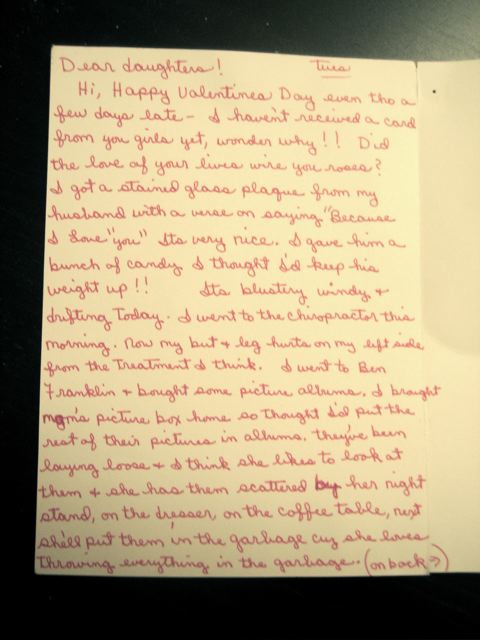 Dear daughters! Tues
Hi, Happy Valentines Day even tho a
few days late - I haven't received a card
from you girls yet, wonder why!! Did
the love of your lives wire you roses?
I got a stained glass plaque from my
husband with a verse on saying "Because
I Love "you" Its very nice. I gave him a
bunch of candy I thought I'd keep his
weight up!! Its blustery windy &
drifting today. I went to the chiropractor this
morning. Now my but & leg hurts on my left side
from the treatment I think. I went to Ben
Franklin & bought some picture albums. I brought
mom's picture box home so thought I'd put the
rest of their pictures in albums. they've been
laying loose & I think she likes to look at
them & she has them scattered by her night
stand, on the dresser, on the coffee table, next
she'll put them in the garbage cuz she loves
throwing everything in the garbage. (on back →)